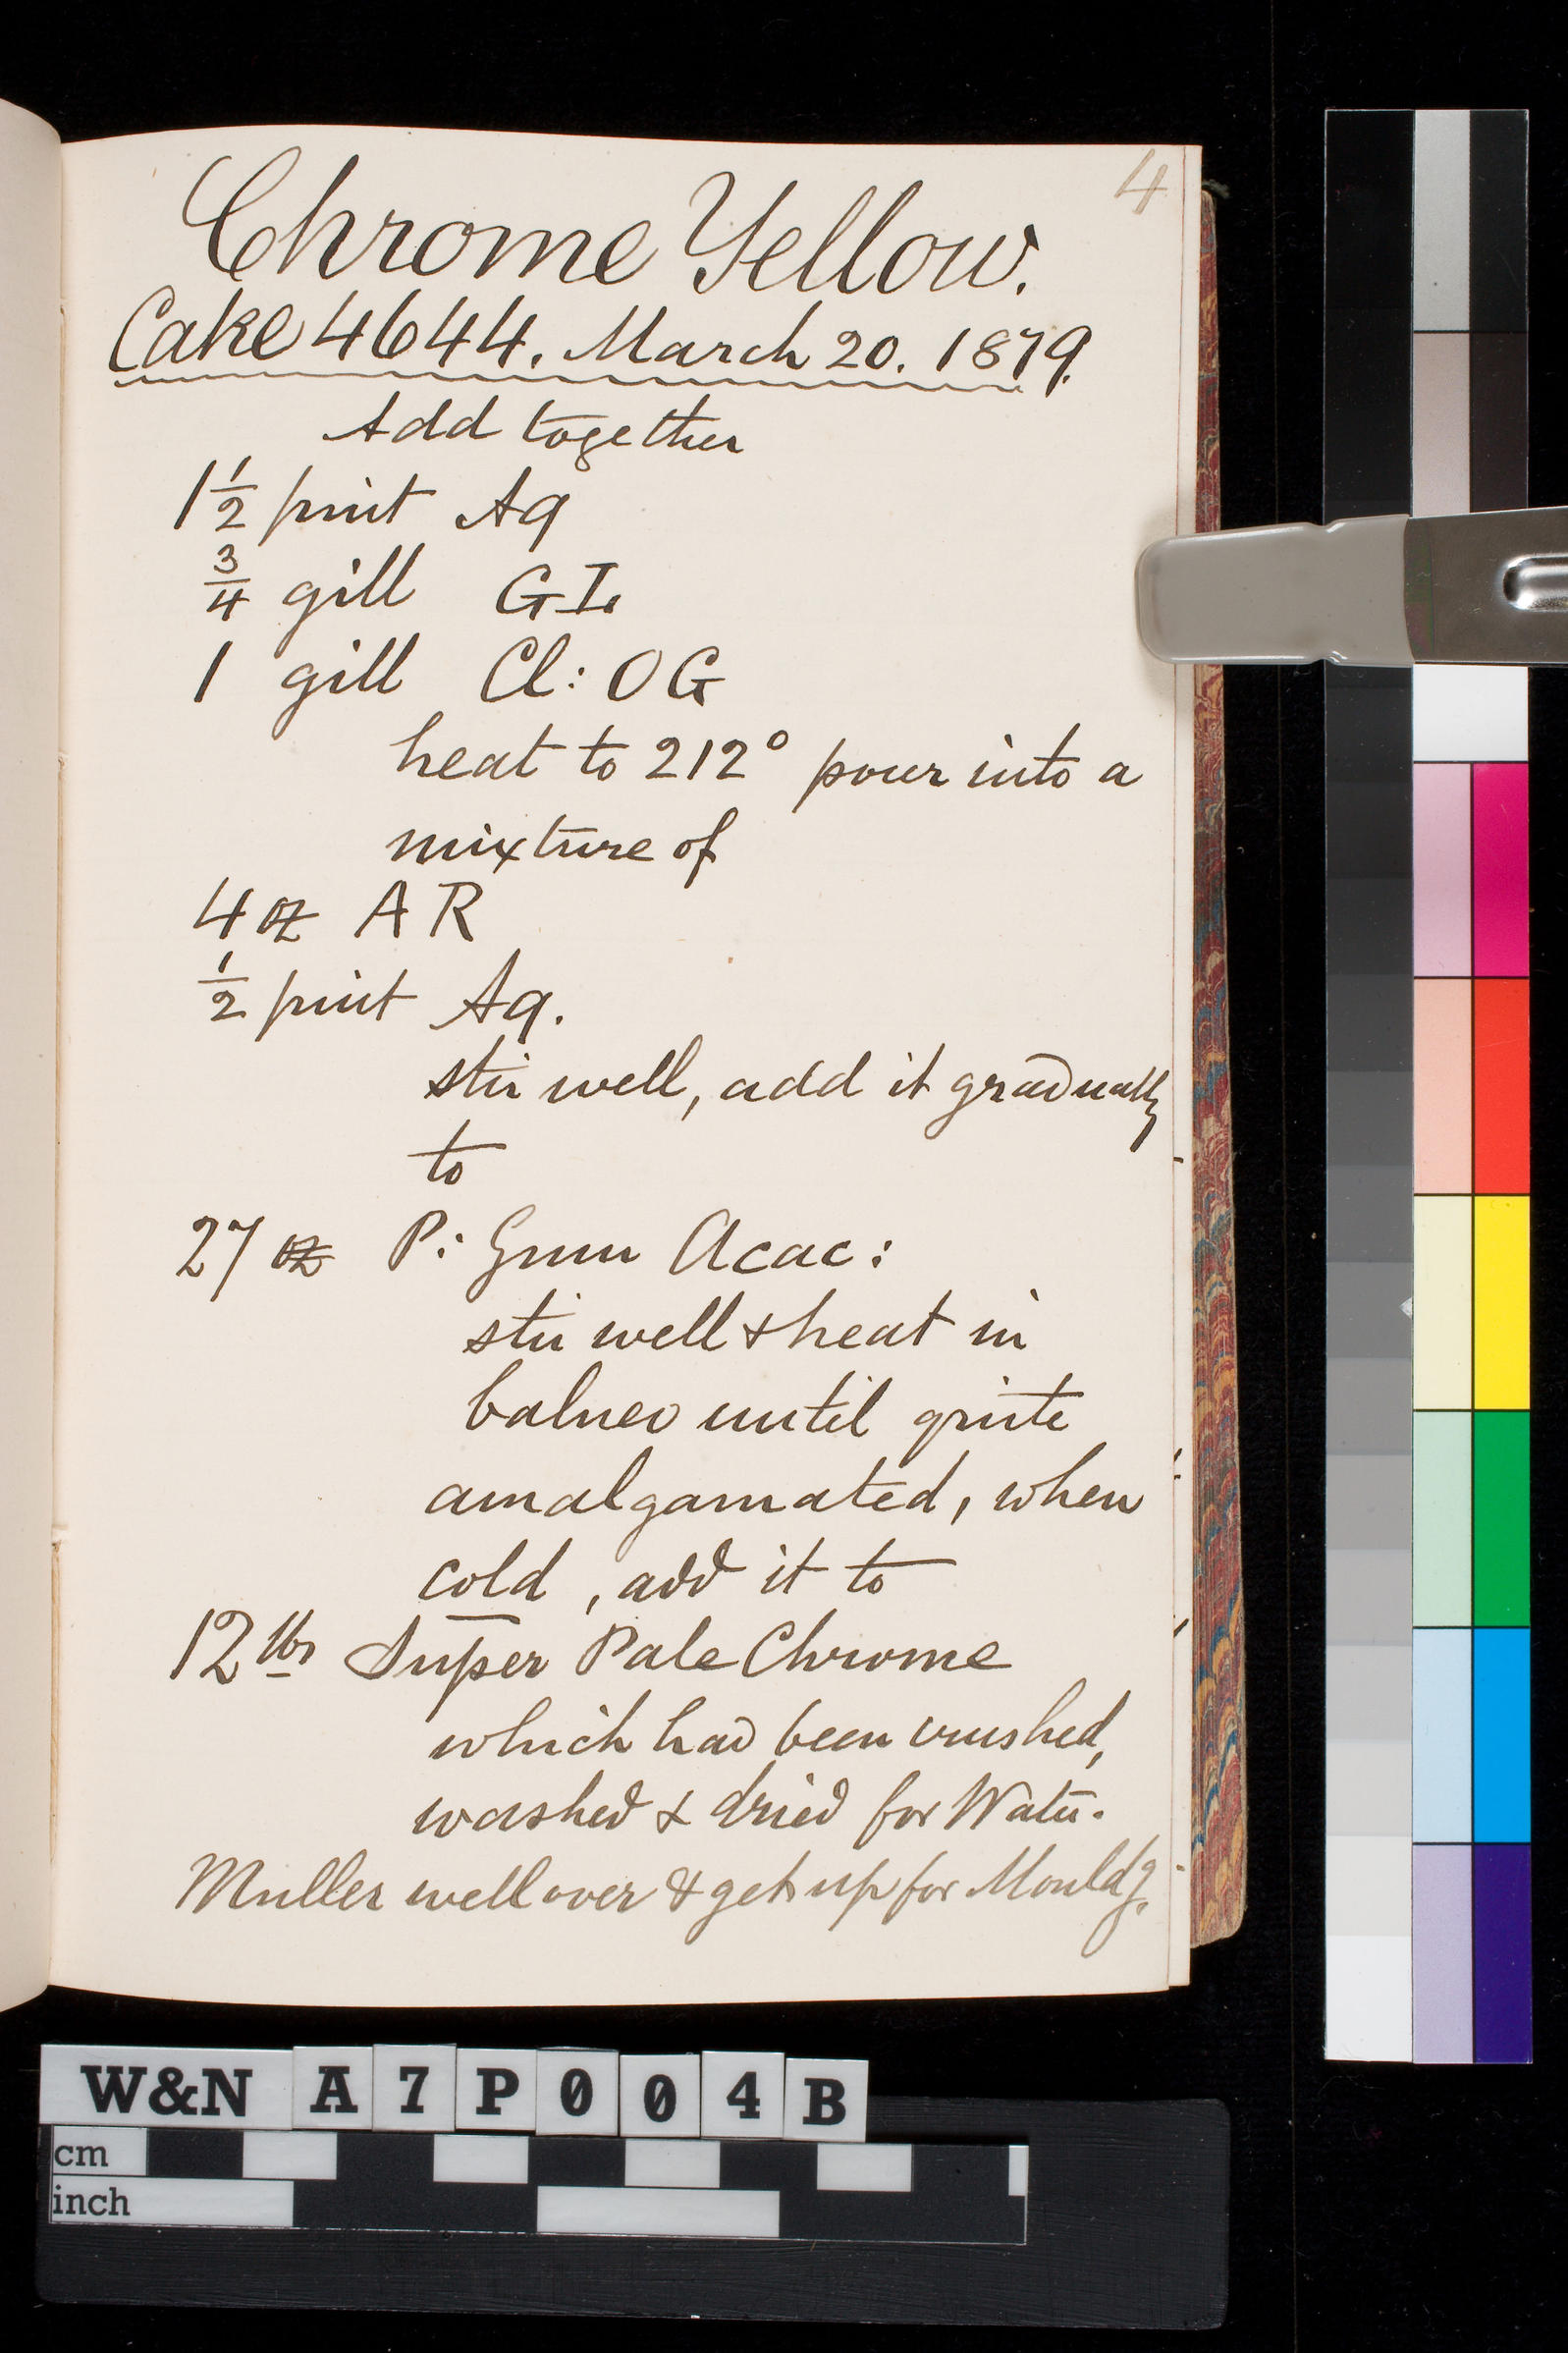 4
Chrome Yellow.
Cake 4644. March 20. 1879.
Add together
1 1/2 pint Aq
3/4 gill GI.
1 gill Cl: OG
heat to 212° pour into a
mixture of
4 oz AR
1/2 pint Aq.
stir well, add it gradually
to
27 oz P: Gum Acac:
stir well & heat in
balneo until quite
amalgamated, when
cold, add it to
12 lbs Super Pale Chrome
which had been crushed,
washed & dried for Water.
Muller well over & get up for Mouldg.
W&N A7P004B
cm
inch